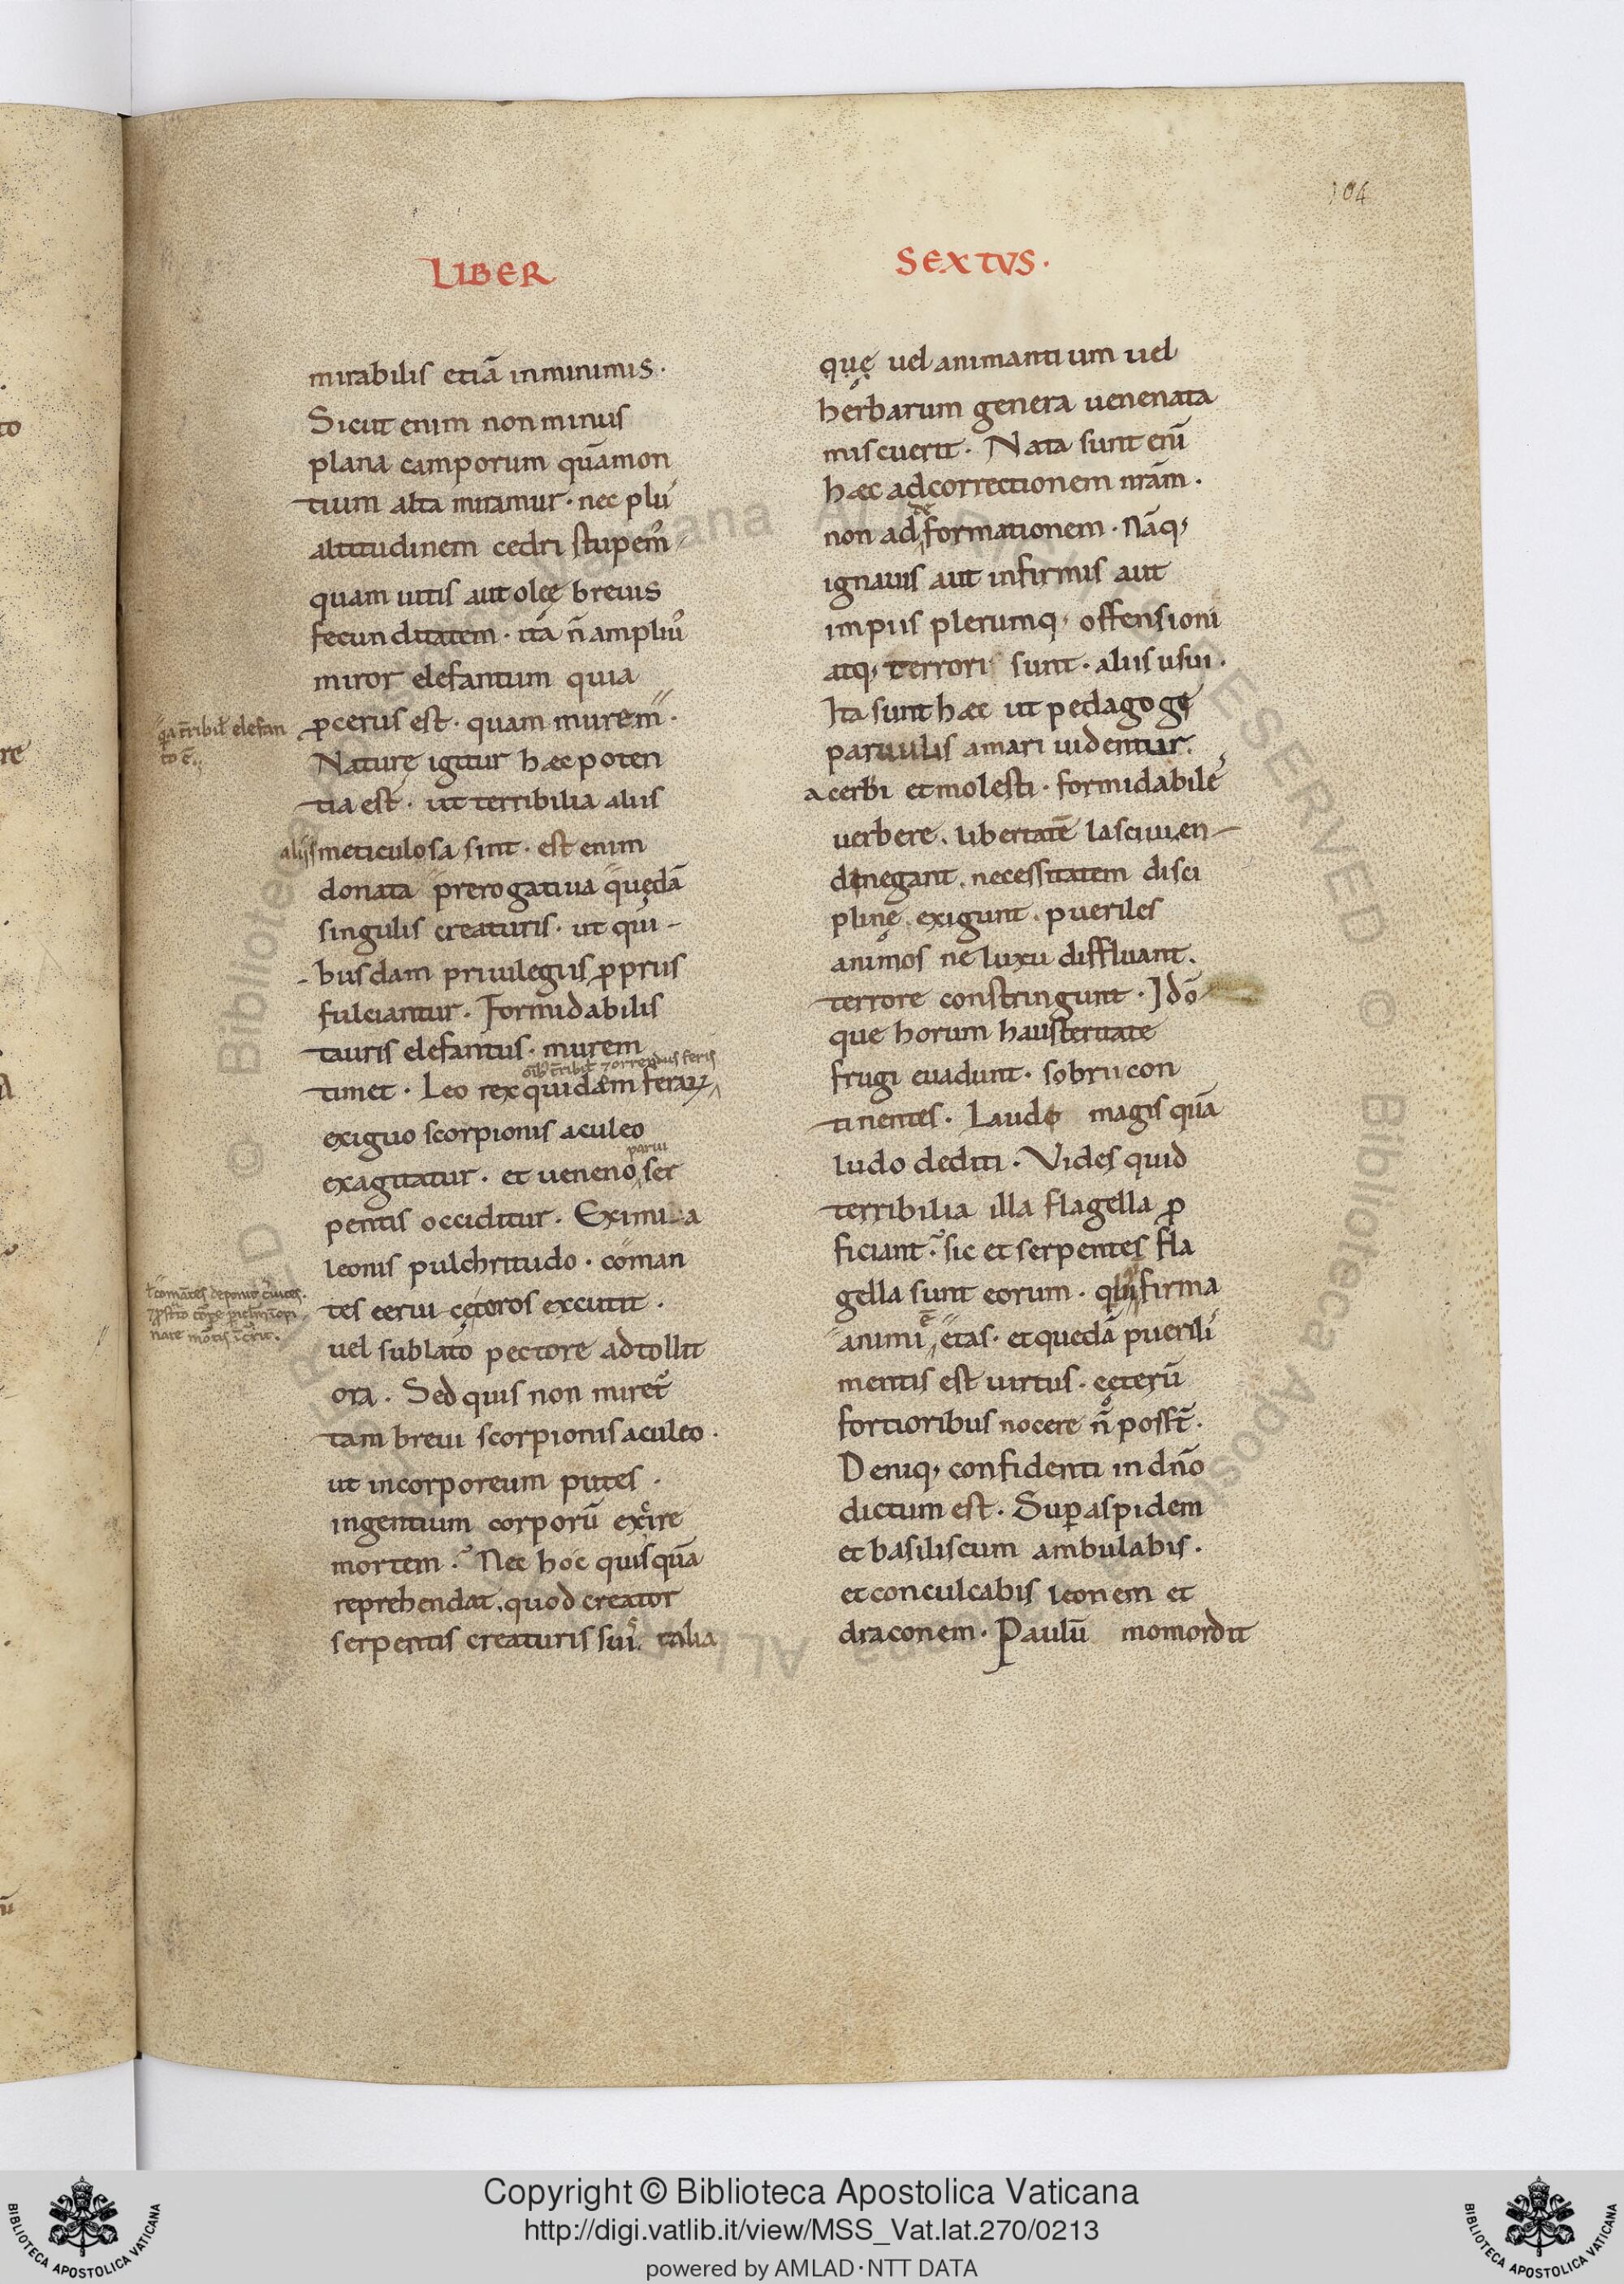 104
LIBER
SEXTVS·
mirabilis etiā inminimis·
Sicut enim non minus
plana camporum quāmon
tium alta miramur· nec plu
altitudinem cedri stupem᷒
quam uitis aut oleę breuis
fecunditatem· ita n̄ ampliu᷒
miror elefantum quia
ꝓcerus est· quam murem·
Naturę igitur hæc poten
tia est· ut terribilia aliis
aliis meticulosa sint· est enim
donata prerogatiua quędā
singulis creaturis· ut qui-
-busdam priuilegiis ꝓpriis
fulciantur· Formidabilis
tauris elefantus· murem
timet· Leo rex quidem feraꝝ
exiguo scorpionis aculeo
exagitatur· et ueneno parui ser
pentis occiditur· Eximia
leonis pulchritudo· coman
tes cerui cętoros excutit·
uel sublato pectore adtollit
ora· Sed quis non miret᷒
tam breui scorpionis aculeo·
ut incorporeum putes·
ingentium corporū exire
mortem·? Nec hoc quisquā
reprehendat, quod creator
serpentis creaturis sui. talia
elefan
to ē
quę uel animantium uel
herbarum genera uenenata
miscuerit· Nata sunt eni᷒
hæc adcorrectionem nrām·
non ad de formationem· Nāq;
ignauis aut infirmis aut
impiis plerumq; offensioni
atq; terrori sunt· aliis usui·
Ita sunt hæc ut pedagogę
paruulis amari uidentur.
acerbi et molesti· formidabile᷒
uerbere. libertatē lasciuien-
denegant. necessitatem disci
plinę exigunt. pueriles
animos ne luxu diffluant.
terrore constringunt· Idō
que horum hausteritate
frugi euadunt· sobrii con
tinentes· Laude magis quā
ludo dediti· Vides quid
terribilia illa flagella ꝓ
ficiant·? sic et serpentes fla
gella sunt eorum· qb; infirma
animi ē ętas· et quedā puerili
mentis est uirtus· ceterū
fortioribus nocere n̄ posst̄·
Deniq; confidenti in dn̄o
dictum est· Suꝑ aspidem
et basiliscum ambulabis·
et conculcabis leonem et
draconem· Paulū momordit
Copyright © Biblioteca Apostolica Vaticana
http://digi.vatlib.it/view/MSS_Vat.lat.270/0213
powered by AMLAD·NTT DATA
BIBLIOTECA APOSTOLICA VATICANA
BIBLIOTECA APOSTOLICA VATICANA